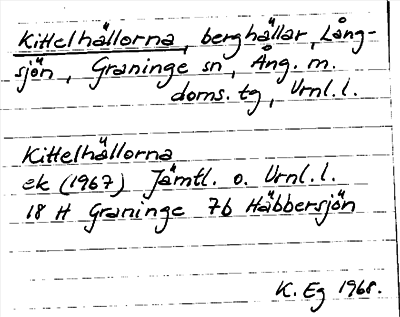 Kittelhällorna, berghällar, Lång-
sjön, Graninge sn, Ång. m.
doms. tg, Vrnl.l.
Kittelhällorna
ek (1967) Jämtl. o. Vrnl.l.
18 H Graninge 7b Häbbersjön
K. Eg 1968.